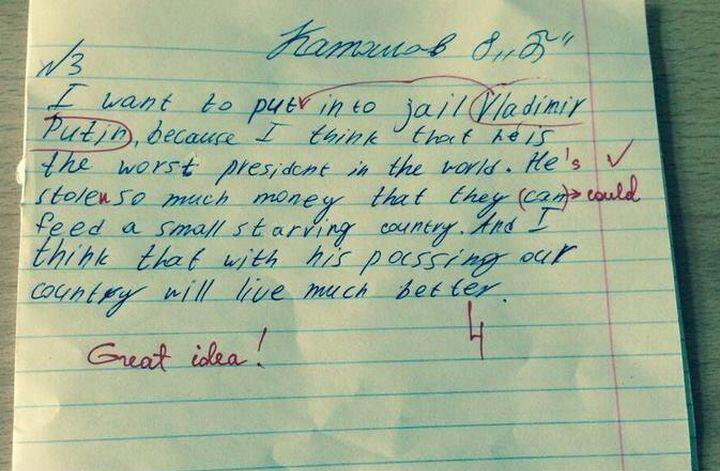 Катамов 8 „Б“
№3
I want to put into jail Vladimir
Putin, because I think that he is
the worst president in the world. He's
stolen so much money that they (can) → could
feed a small starving country. And I
think that with his pocssing our
country will live much better.
Great idea! 4